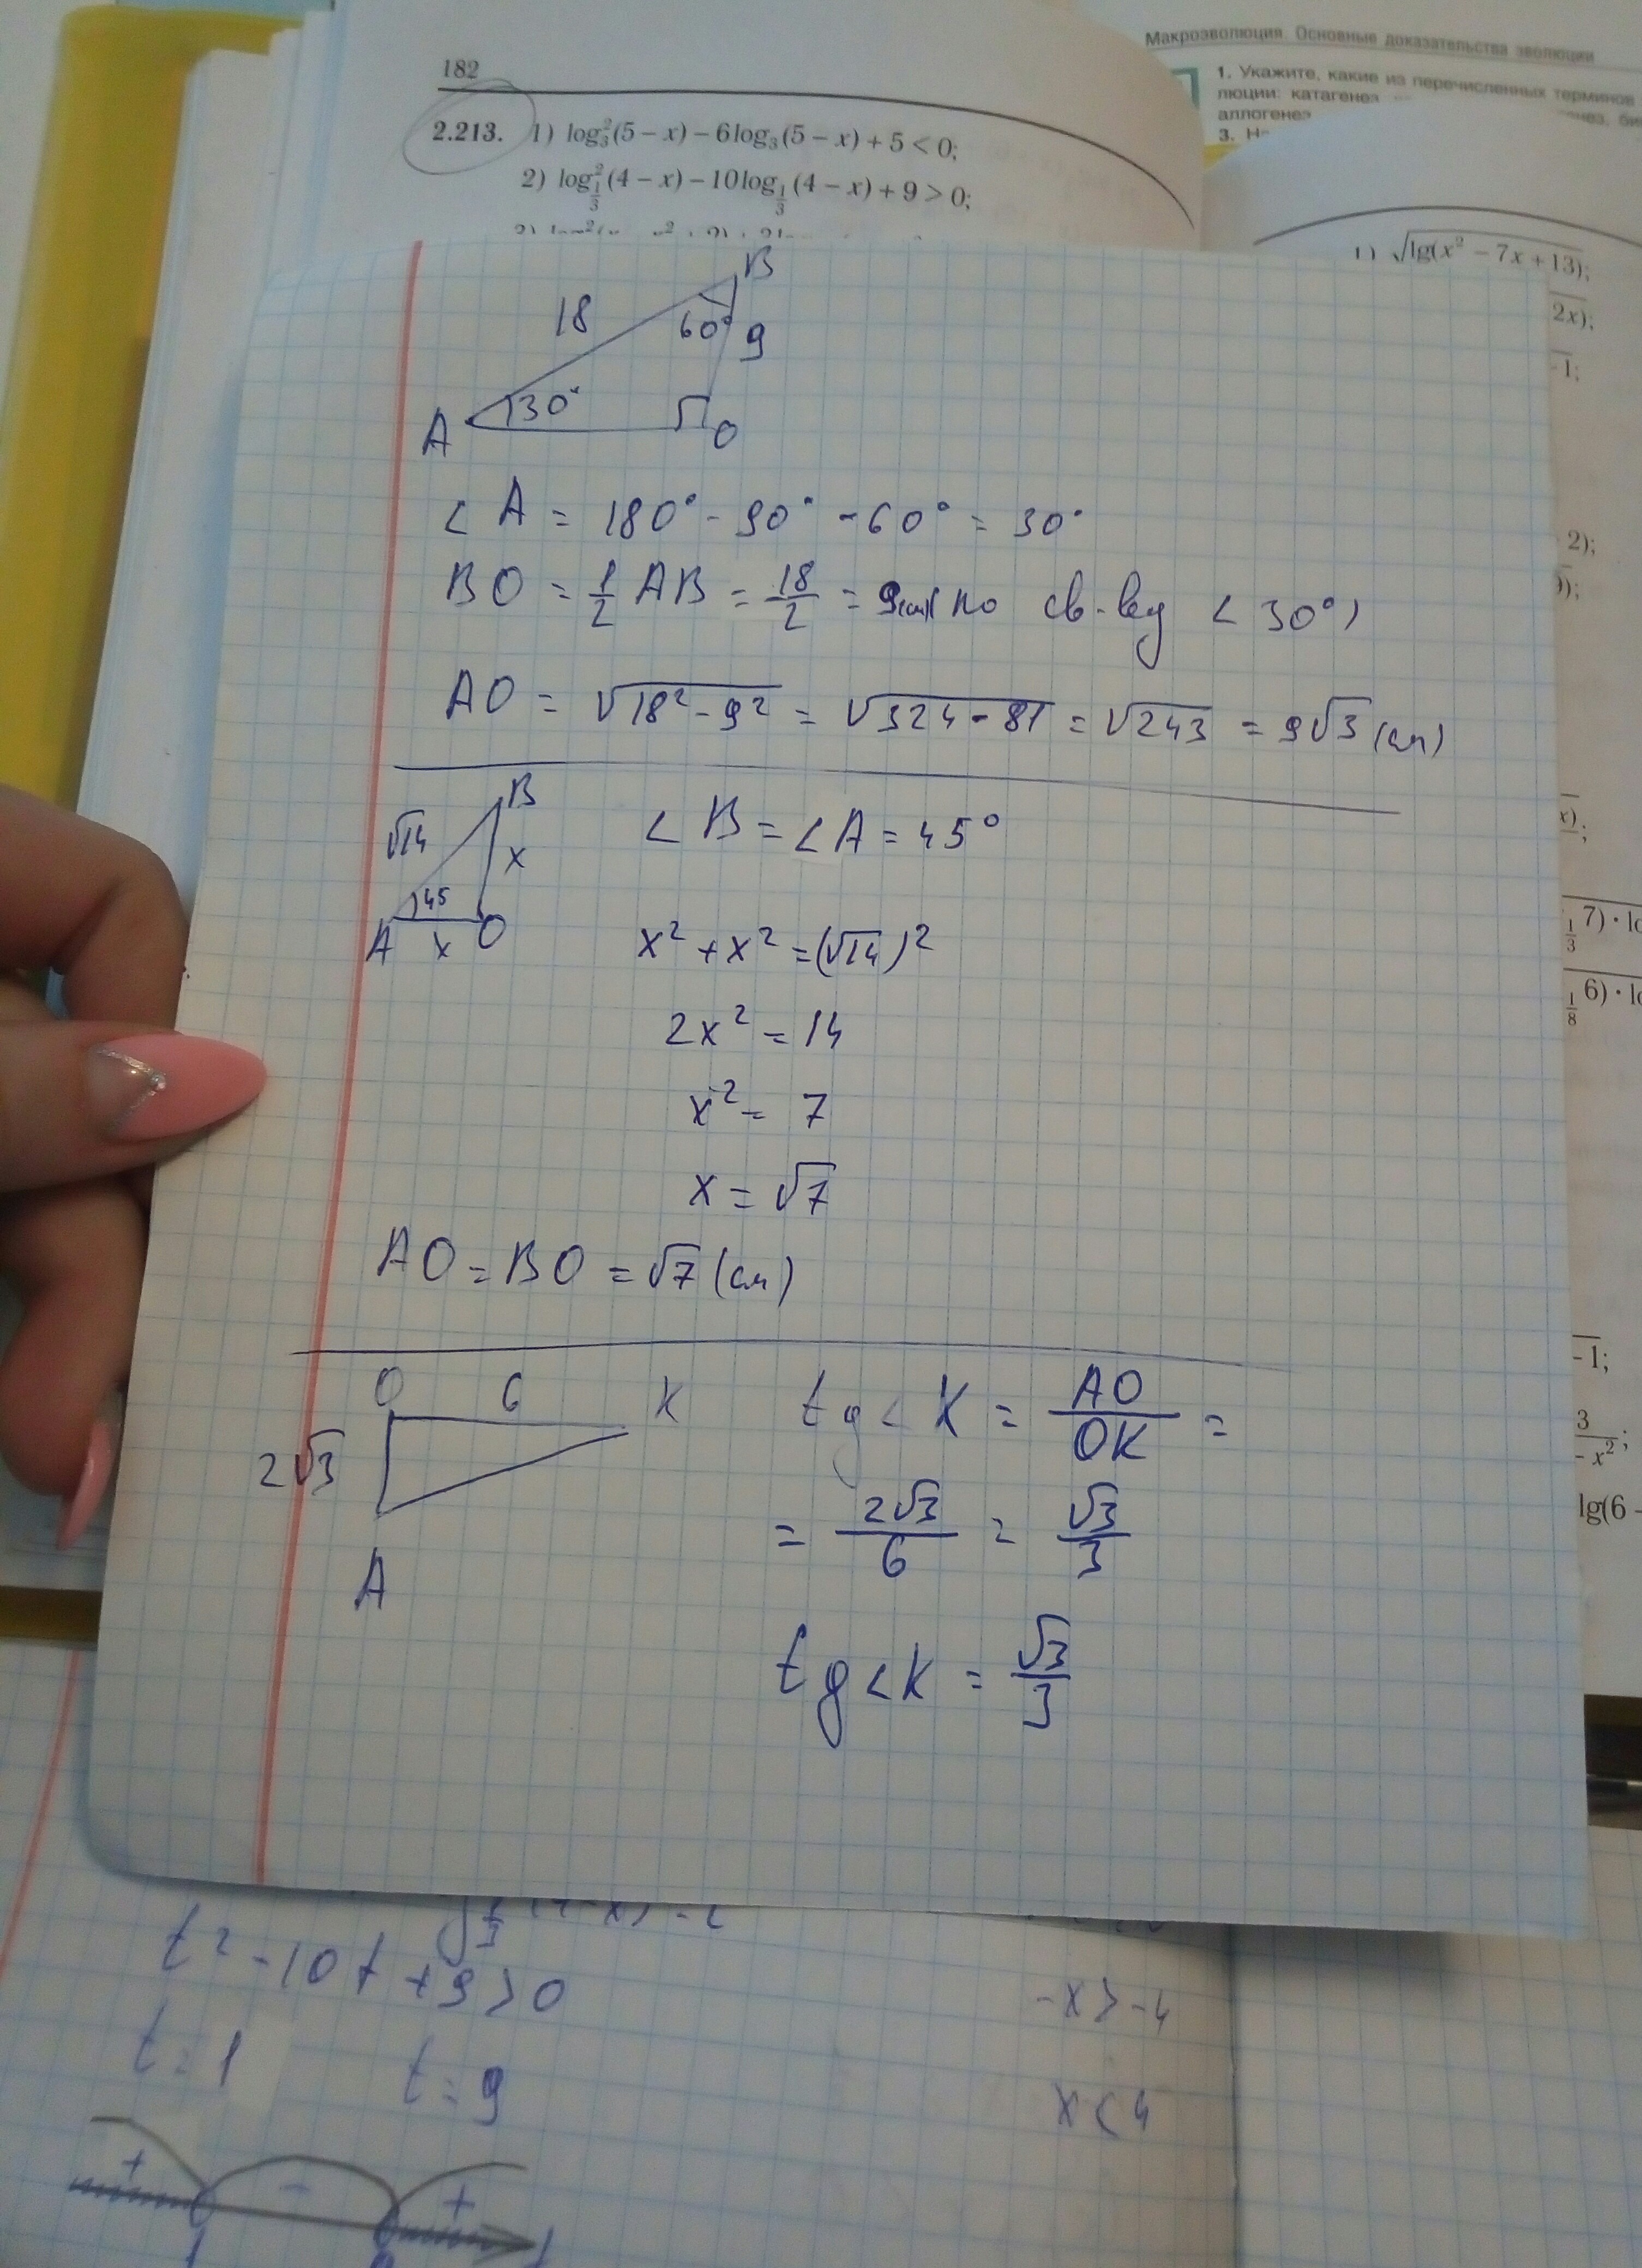 182
2.213. 1) log₃²(5 − x) − 6log₃(5 − x) + 5 < 0;
2) log²_{1/3}(4 − x) − 10log_{1/3}(4 − x) + 9 > 0;
Макроэволюция. Основные доказательства эволюции
1. Укажите, какие из перечисленных терминов
люции: катагенез
аллогенез
3.
1) √lg(x² − 7x + 13);
2x);
-1;
2);
x)
7) · lo
6) · lo
-1;
3
- x²;
lg(6 -
B
18
60°
9
A
30°
O
< A = 180° - 90° - 60° = 30°
BO = 1/2 AB = 18/2 = 9 см (по св-ву < 30°)
AO = √18² - 9² = √324 - 81 = √243 = 9√3 (см)
B
√14
x
45
A
x
O
< B = < A = 45°
x² + x² = (√14)²
2x² = 14
x² = 7
x = √7
AO = BO = √7 (см)
O
6
K
2√3
A
tg < K = AO/OK =
= 2√3/6 = √3/3
tg < K = √3/3
t² - 10t + 9 > 0
t = 1
t = 9
-x > -4
x < 4
+
-
+
1
t